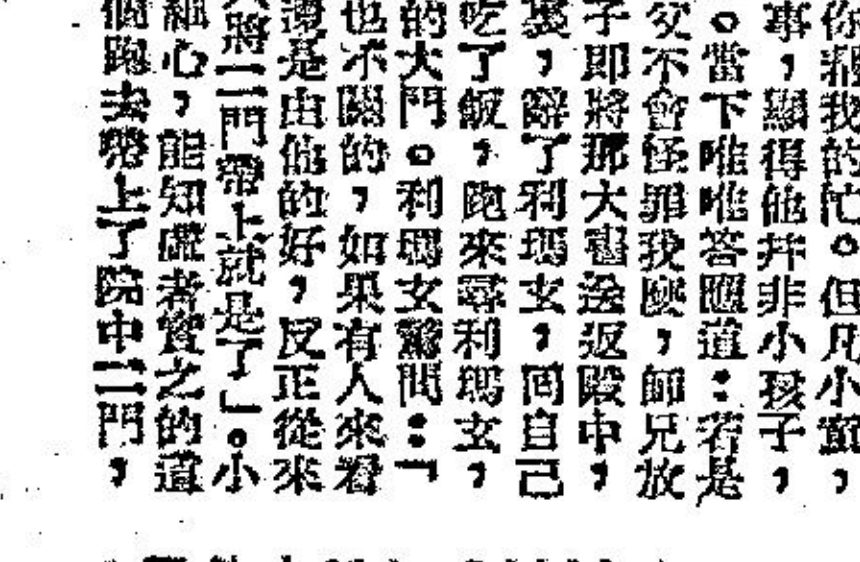 你幫我的忙。但凡小童,
事,顯得他并非小孩子,
。當下唯唯答應道:若是
父不會怪罪我麼,師兄放
子即將那大書送返殿中,
裏,辭了利瑪玄,回自己
吃了飯,跑來尋利瑪玄,
的大門。利瑪玄驚問:「
也不關的,如果有人來看
還是由他的好,反正從來
將二門帶上就是了」。小
細心,能知虛者實之的道
個跑去帶上了院中二門,